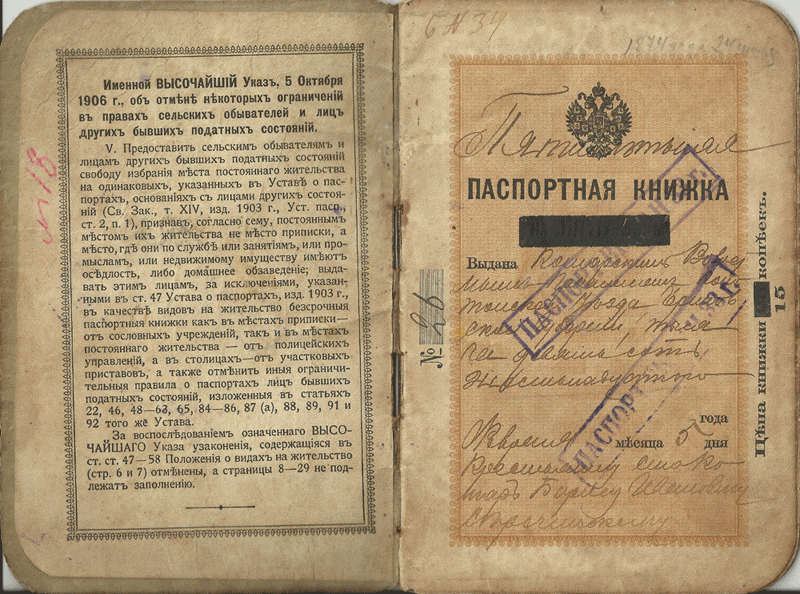 Именной ВЫСОЧАЙШІЙ Указъ, 5 Октября
1906 г., объ отмѣнѣ нѣкоторыхъ ограниченій
въ правахъ сельскихъ обывателей и лицъ
другихъ бывшихъ податныхъ состояній.
V. Предоставить сельскимъ обывателямъ и
лицамъ другихъ бывшихъ податныхъ состояній
свободу избранія мѣста постояннаго жительства
на одинаковыхъ, указанныхъ въ Уставѣ о пас-
портахъ, основаніяхъ съ лицами другихъ состоя-
ній (Св. Зак., т. XIV, изд. 1903 г., Уст. пасп.
ст. 2, п. 1), признавъ, согласно сему, постояннымъ
мѣстомъ ихъ жительства не мѣсто приписки, а
мѣсто, гдѣ они по службѣ или занятіямъ, или про-
мысламъ, или недвижимому имуществу имѣютъ
осѣдлость, либо домашнее обзаведеніе; выда-
вать этимъ лицамъ, за исключеніями, указан-
ными въ ст. 47 Устава о паспортахъ, изд. 1903 г.,
въ качествѣ видовъ на жительство безсрочныя
паспортныя книжки какъ въ мѣстахъ приписки—
отъ сословныхъ учрежденій, такъ и въ мѣстахъ
постояннаго жительства — отъ полицейскихъ
управленій, а въ столицахъ—отъ участковыхъ
приставовъ, а также отмѣнить иныя ограничи-
тельныя правила о паспортахъ лицъ бывшихъ
податныхъ состояній, изложенныя въ статьяхъ
22, 46, 48—63, 65, 84—86, 87 (а), 88, 89, 91 и
92 того же Устава.
За воспослѣдованіемъ означеннаго ВЫСО-
ЧАЙШАГО Указа узаконенія, содержащіяся въ
ст. ст. 47—58 Положенія о видахъ на жительство
(стр. 6 и 7) отмѣнены, а страницы 8—29 не под-
лежатъ заполненію.
Пятилѣтняя
ПАСПОРТНАЯ КНИЖКА
Выдана
уѣзда
губерніи, тыся
ча девять сотъ
года
мѣсяца 5 дня
Борису Ивановичу
№ 26
Цѣна книжки 15 копѣекъ.
ПАСПОРТ
ПАСПОРТ